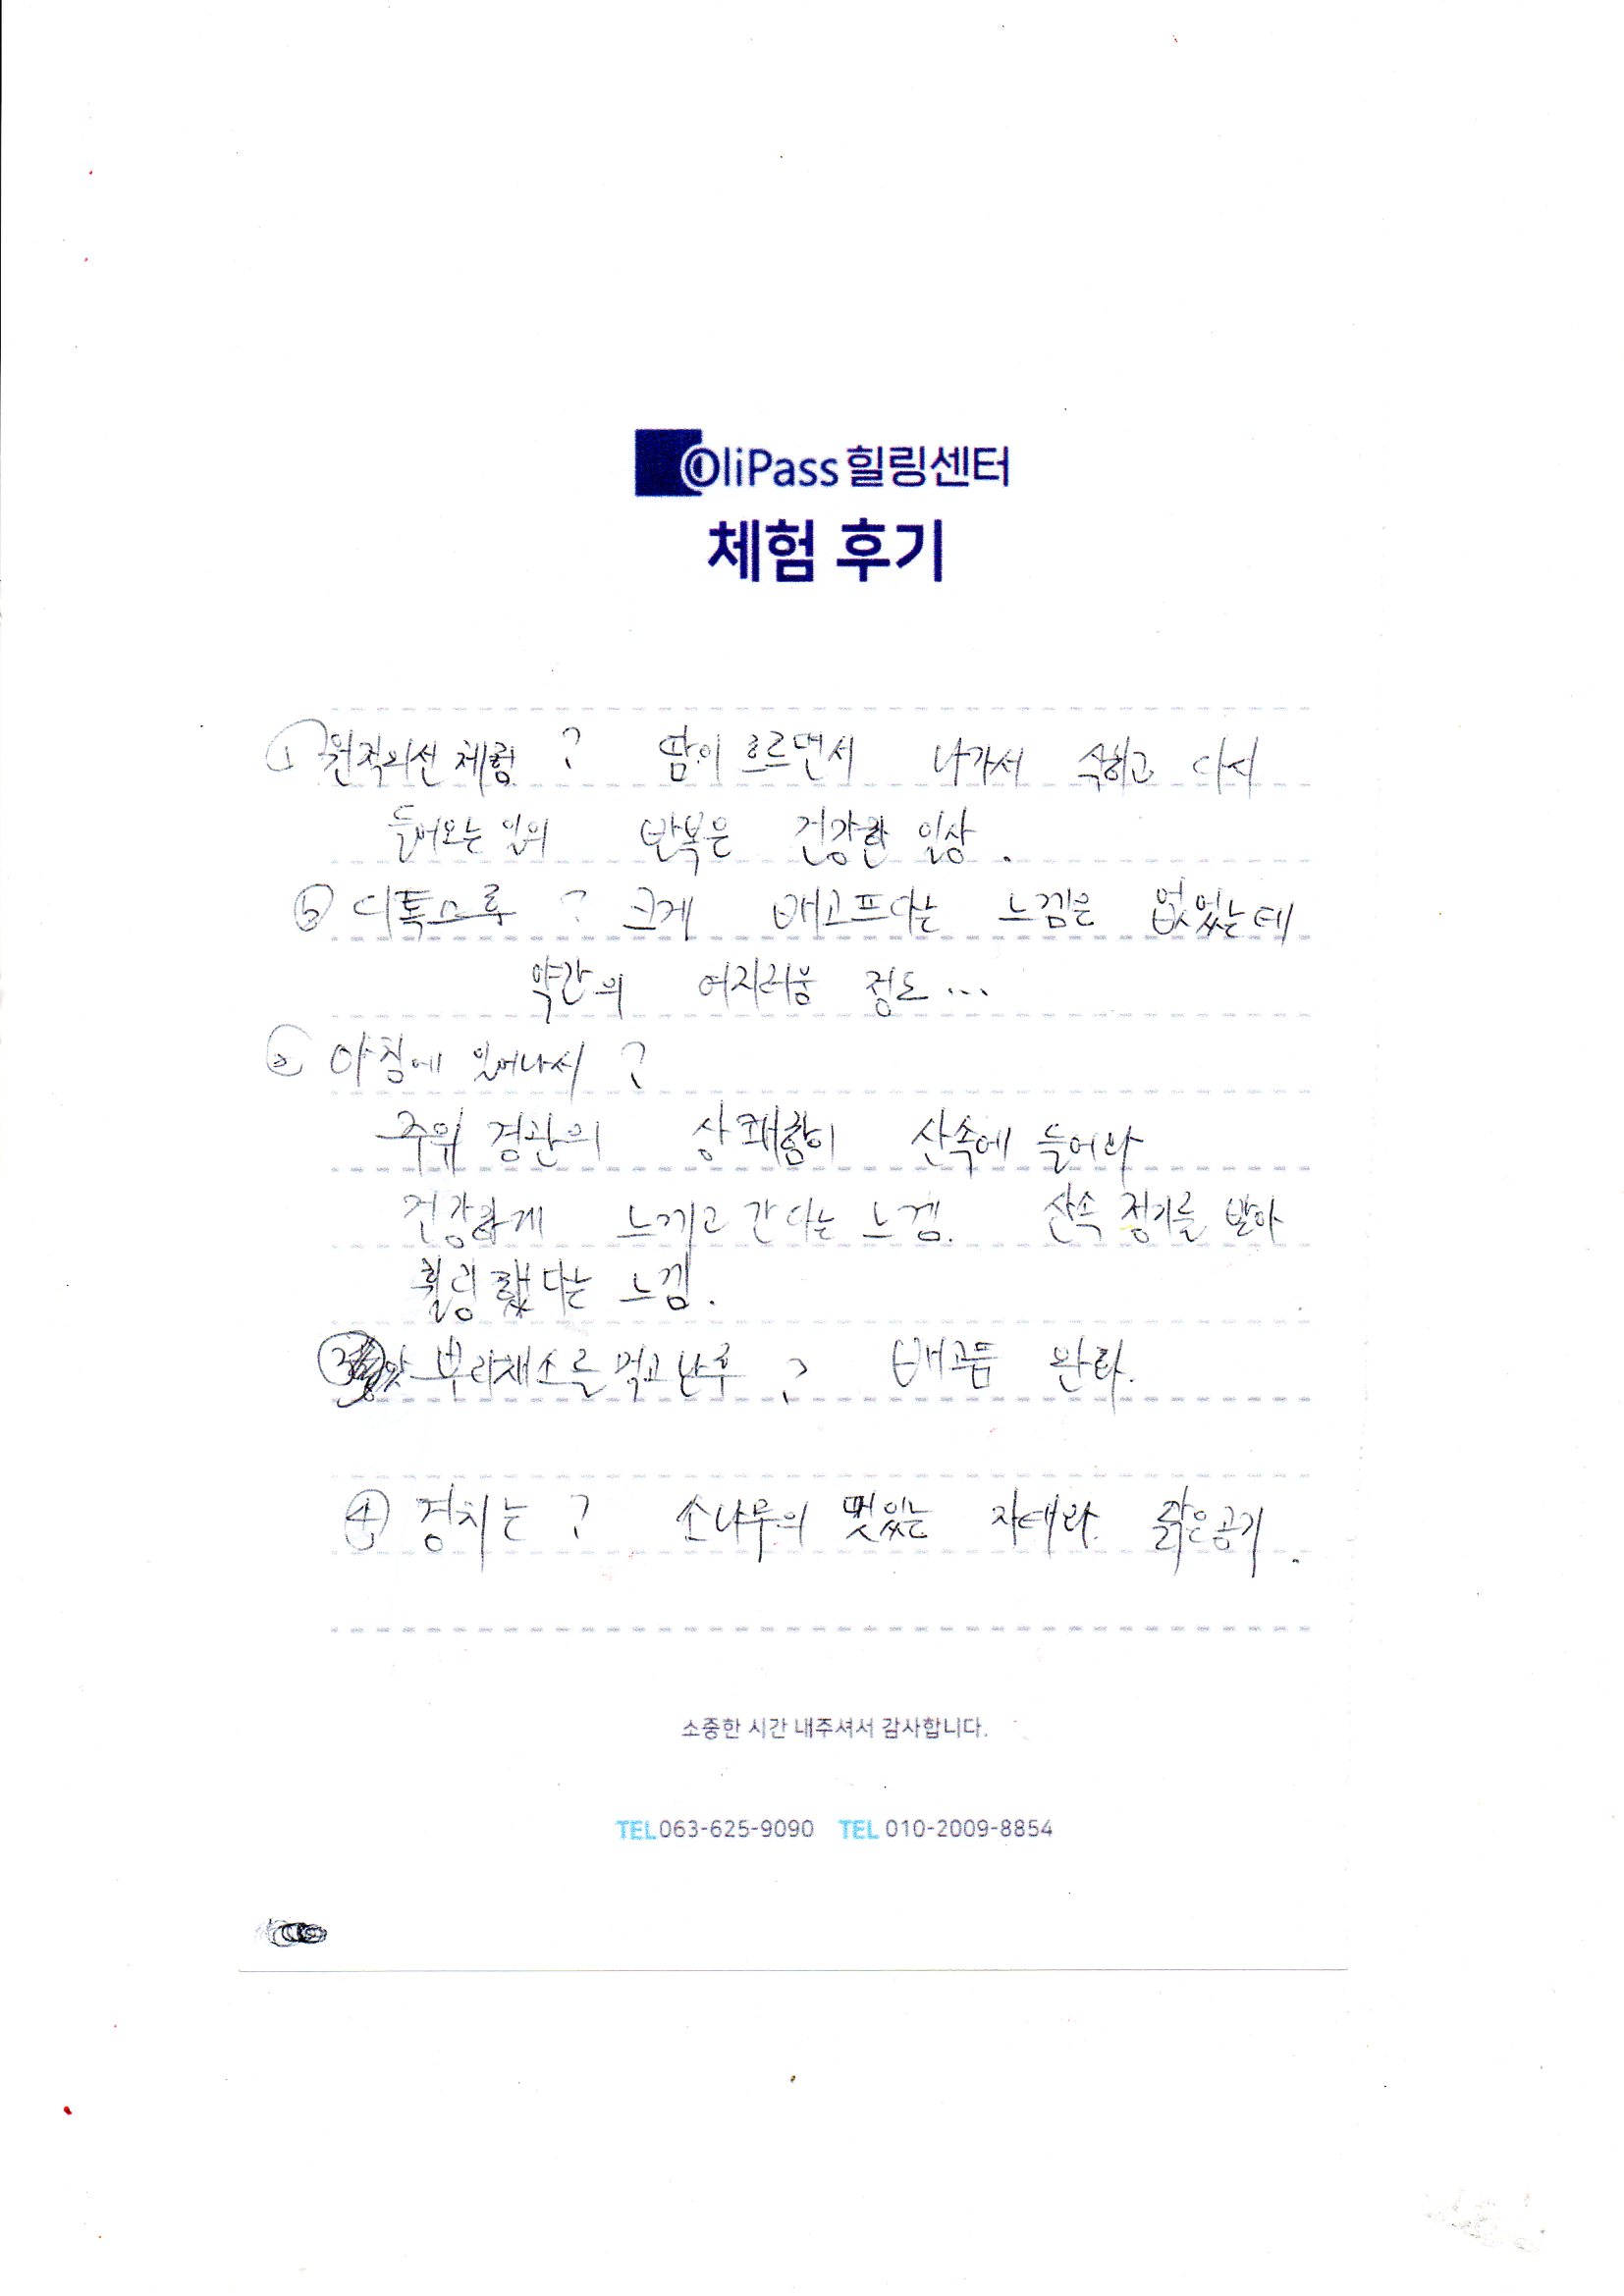 OliPass 힐링센터
체험 후기
① 원적외선 체험 ? 땀이 흐르면서 나가서 식히고 다시
들어오는 일의 반복은 건강한 일상.
⑤ 디톡스후 ? 크게 배고프다는 느낌은 없었는데
약간의 어지러움 정도...
② 아침에 일어나서 ?
주위 경관의 상쾌함이 산속에 들어와
건강하게 느끼고 간다는 느낌. 산속 정기를 받아
힐링했다는 느낌.
③ 뿌리채소를 먹고 난후 ? 배고픔 완화.
④ 경치는 ? 소나무의 멋있는 자태와 맑은공기.
소중한 시간 내주셔서 감사합니다.
TEL 063-625-9090 TEL 010-2009-8854